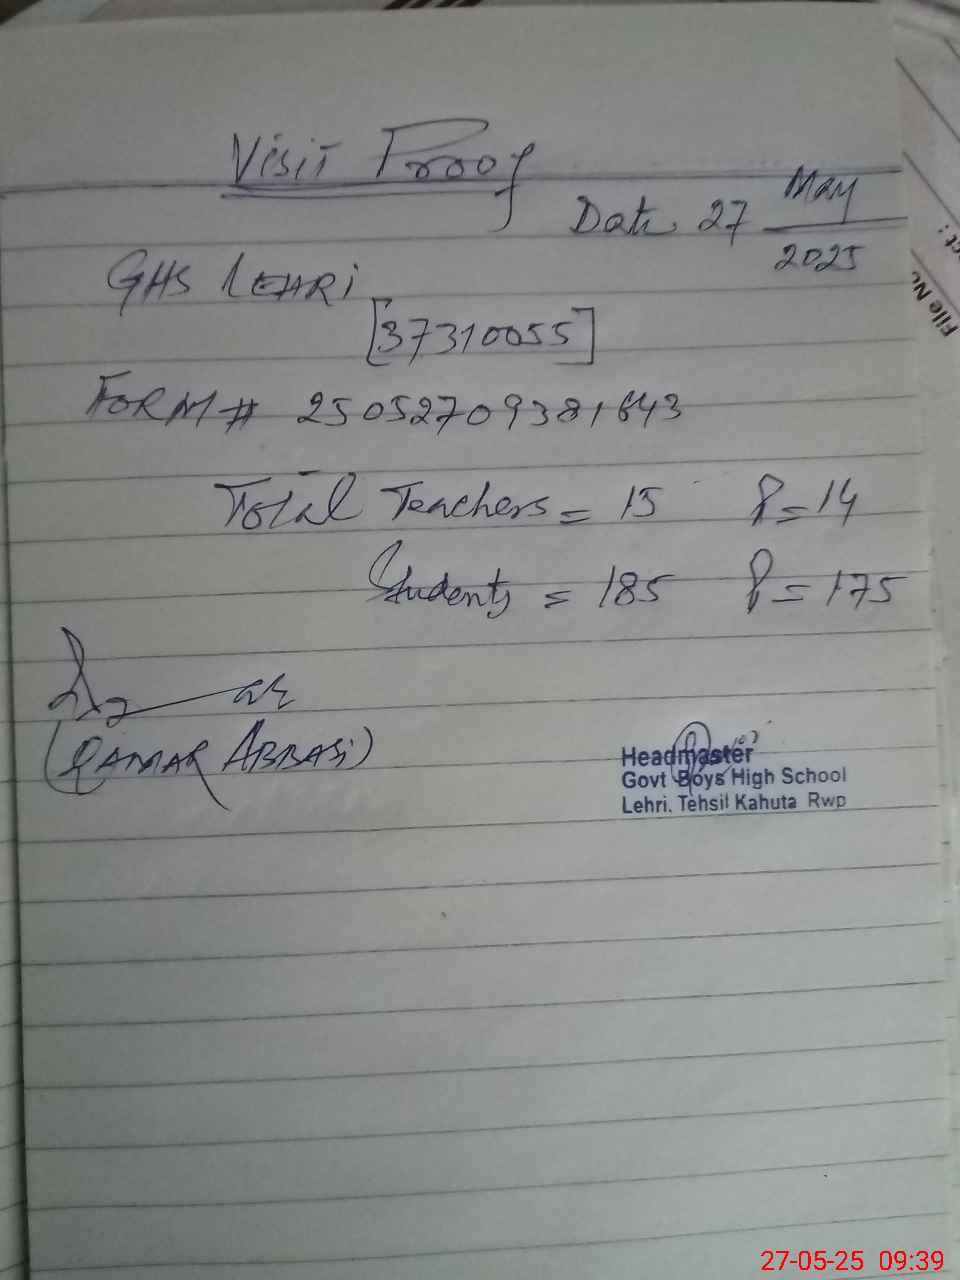 Visit Proof
Date 27 May
2025
GHS LEHRI
[37310055]
FORM# 25052709381643
Total Teachers = 15 P=14
Students = 185 P=175
(QAMAR ABBASI)
Headmaster
Govt Boys High School
Lehri. Tehsil Kahuta Rwp
File No
27-05-25 09:39